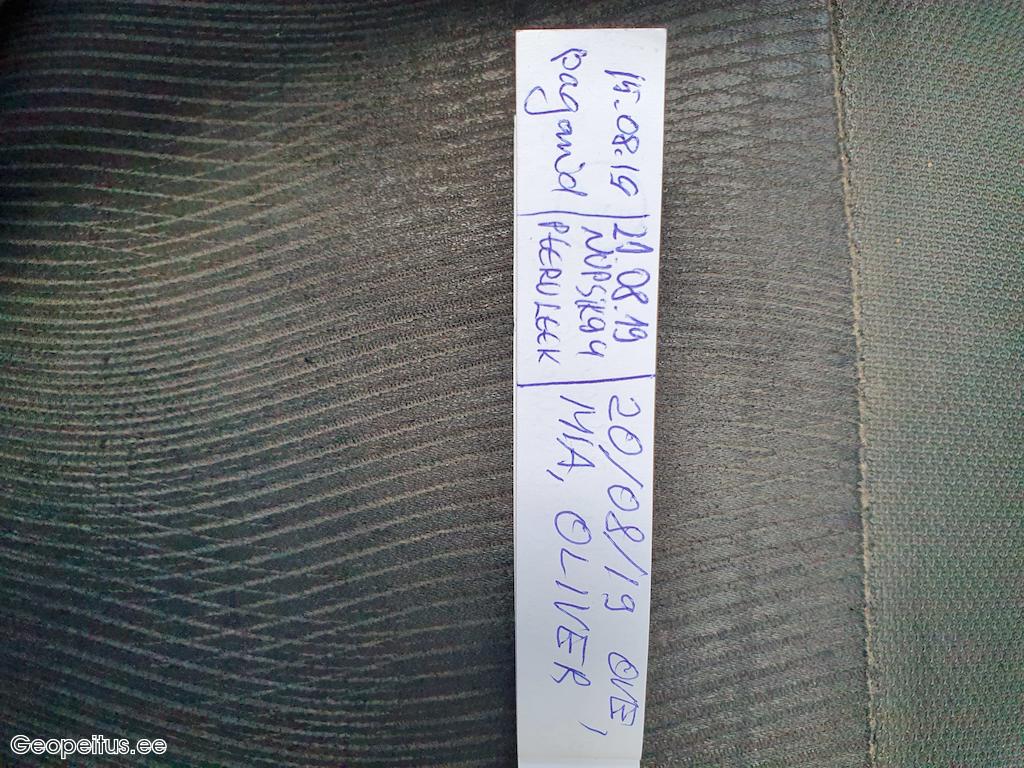 15.08.19
paganid
21.08.19
NÖPSIK94
PIERULEEK
20/08/19 OVE,
MIA, OLIVER,
Geopeitus.ee